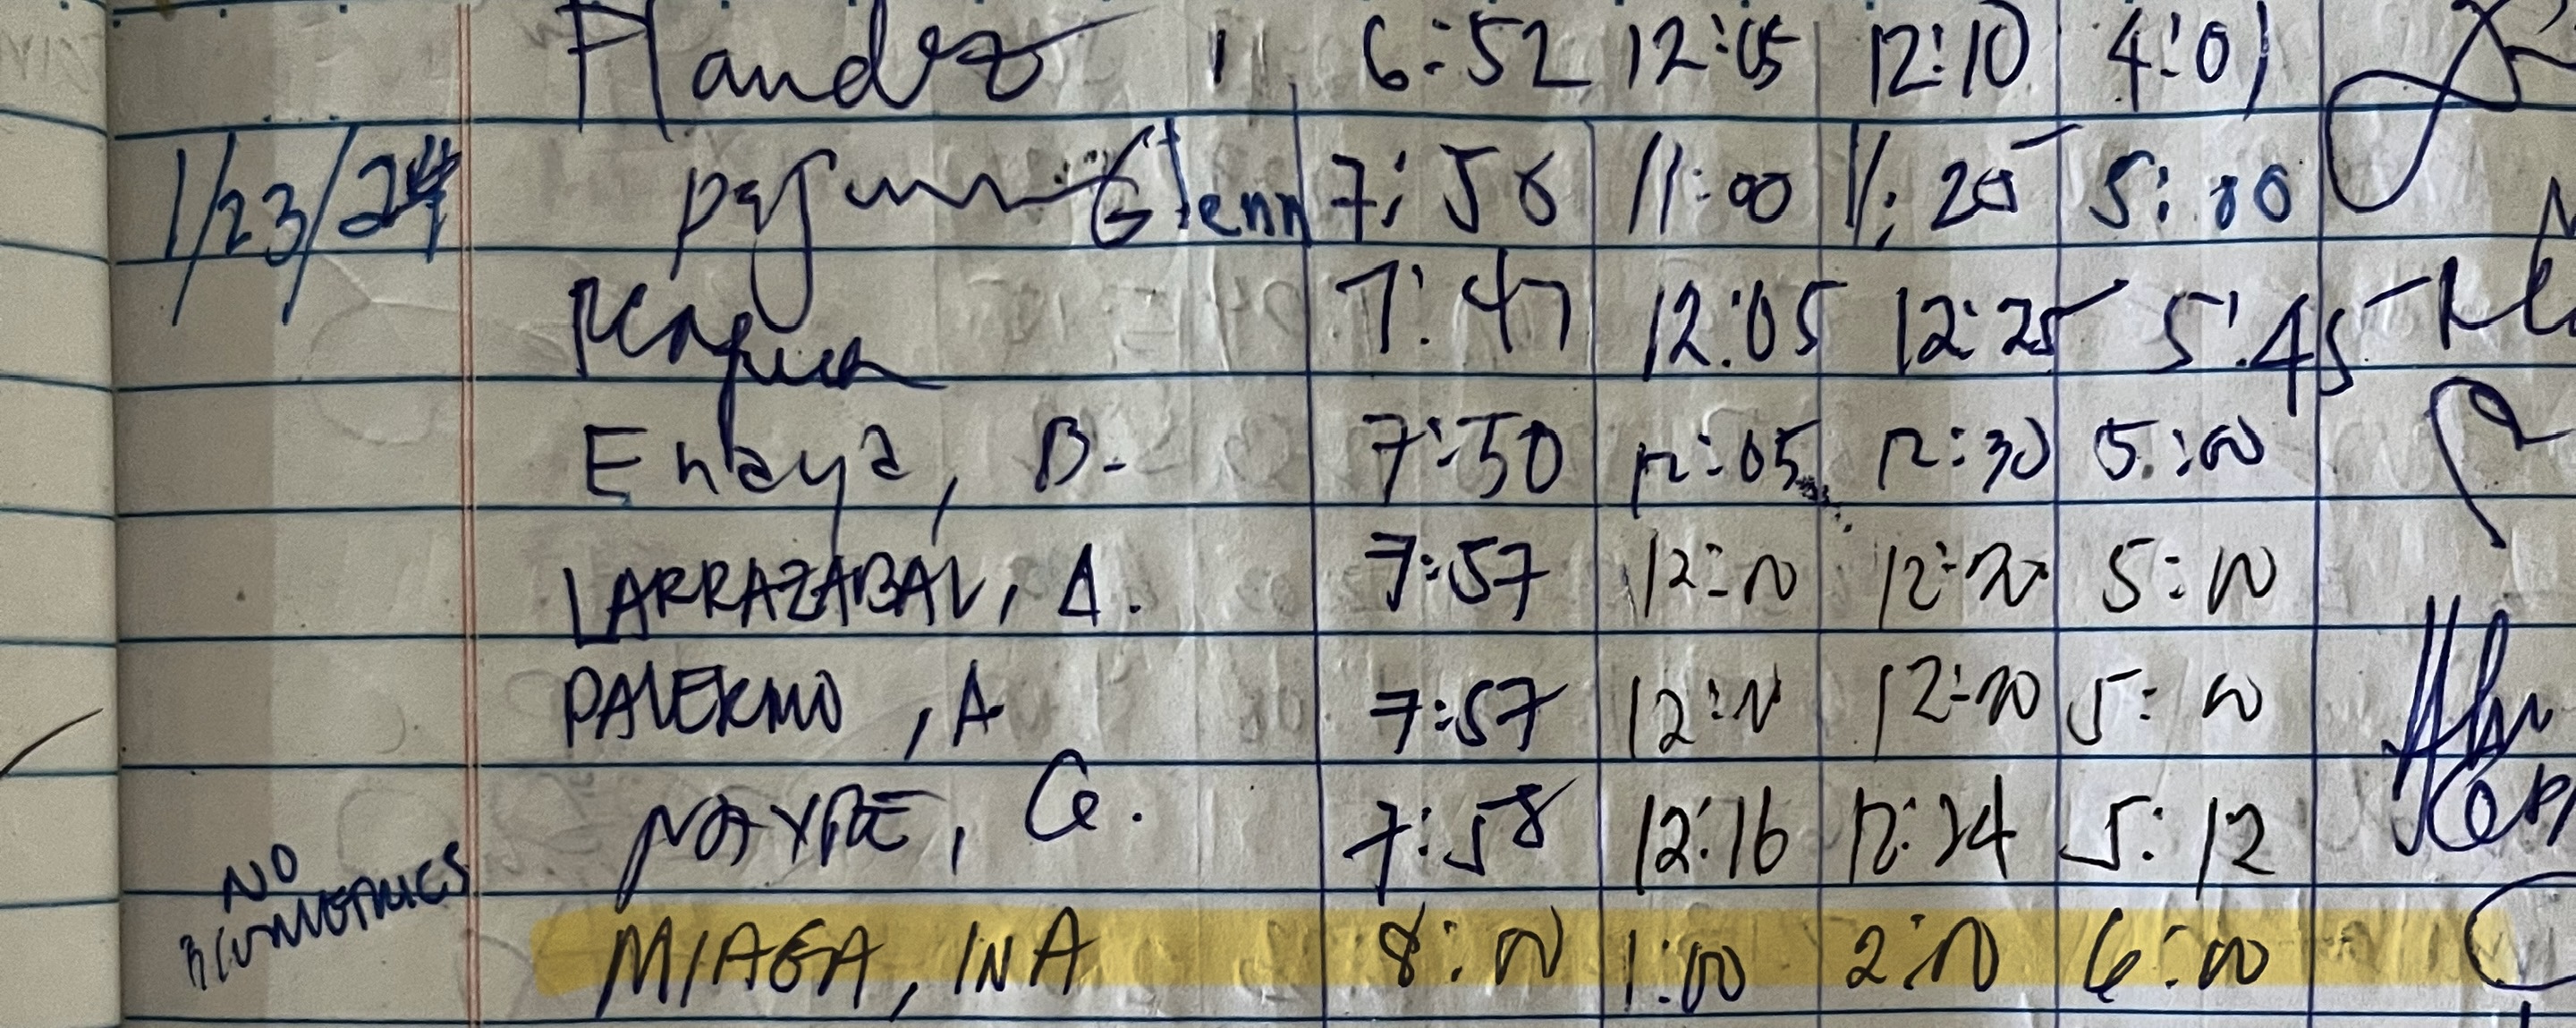 Flandez 6:52 12:05 12:10 4:01
1/23/24 Glenn 7:56 11:00 11:20 5:00
7:47 12:05 12:25 5:45
Enaya, B. 7:50 12:05 12:30 5:00
LARRAZABAL, A. 7:57 12:00 12:20 5:00
PALERMO, A 7:57 12:00 12:20 5:00
NAYRE, G. 7:58 12:16 12:24 5:12
NO BIOMETRICS
MIAGA, INA 8:00 1:00 2:00 6:00